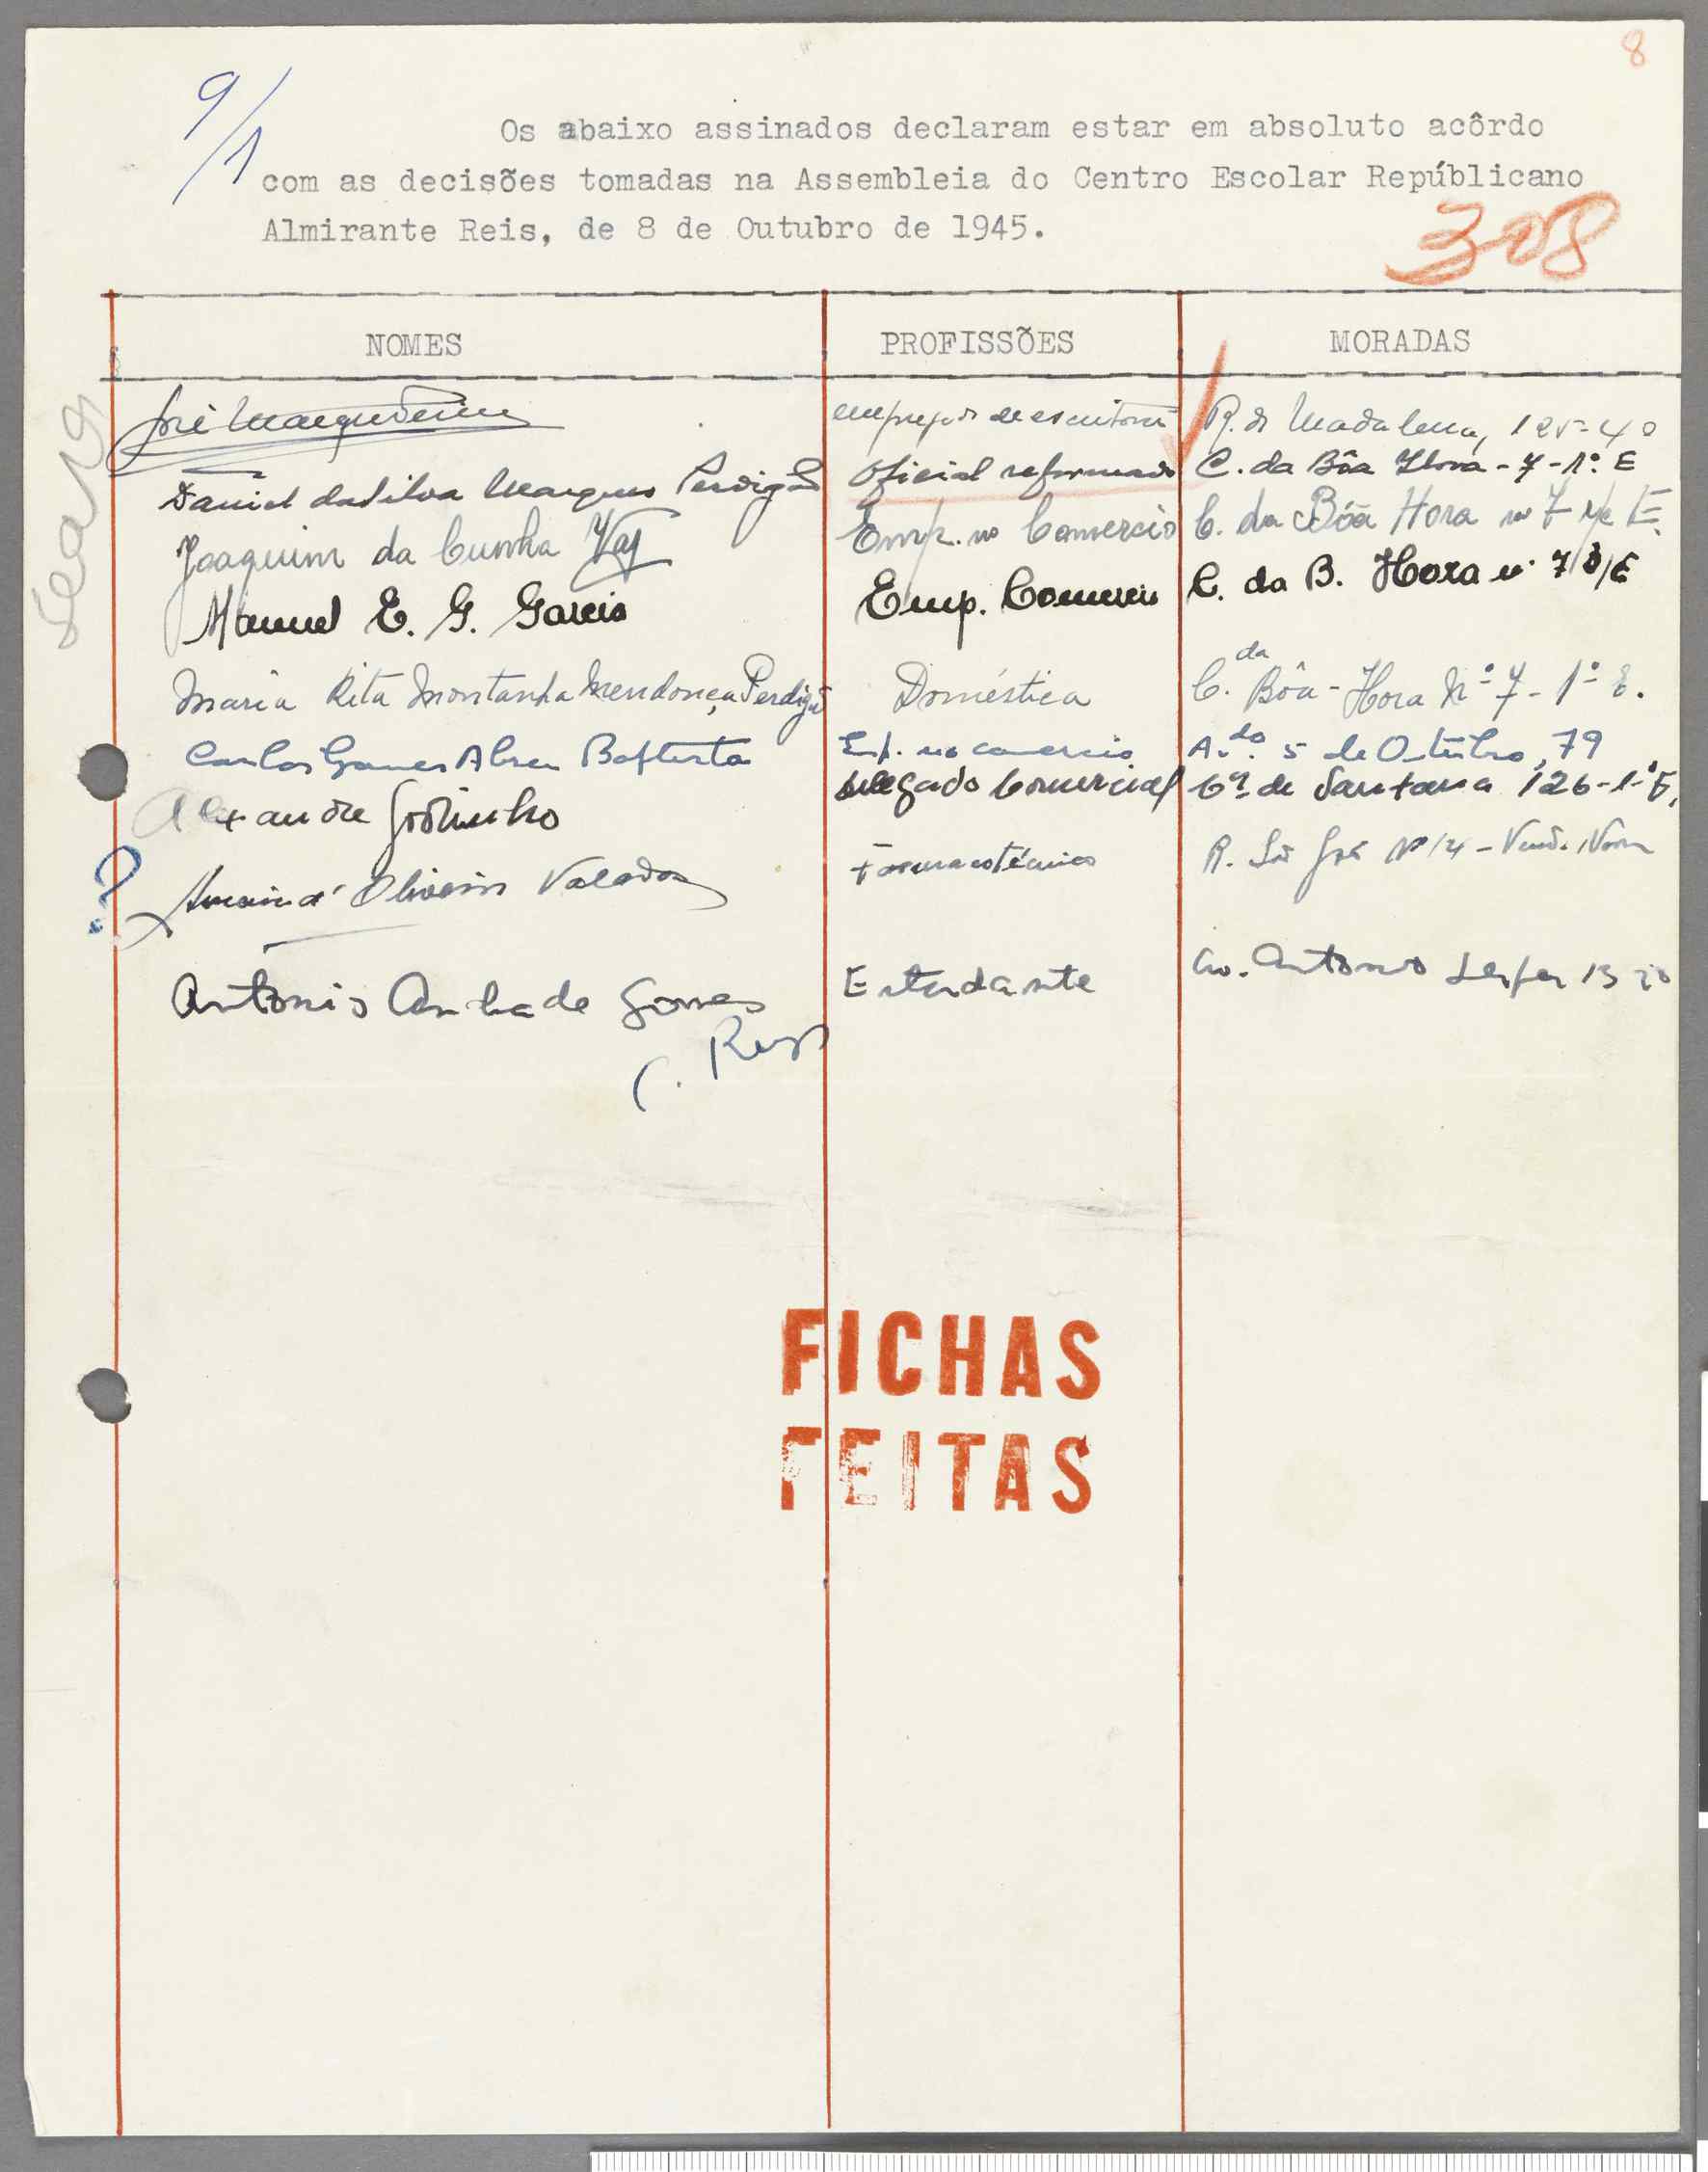 8
9/1
Os abaixo assinados declaram estar em absoluto acôrdo
com as decisões tomadas na Assembleia do Centro Escolar Repúblicano
Almirante Reis, de 8 de Outubro de 1945.
308
NOMES PROFISSÕES MORADAS
José R. da Madalena, 125-4º
Daniel da Silva Marques Perdigão Oficial reformado C. da Bôa Hora - 7 - 1º. E
Joaquim da Cunha Vaz Emp. no Comercio C. da Bôa Hora nº 7 r/c E.
Manuel E. G. Garcia Emp. Comercio C. da B. Hora nº 7
Maria Rita Montanha Mendonça Perdigão Doméstica C. da Bôa-Hora Nº 7 - 1º E.
Carlos Gomes Abreu Baptista Emp. no comercio Av. 5 de Outubro, 79
Alexandre Godinho Delegado Comercial de Santana 126-1º E.
? Oliveira Valadas R. São José Nº 14 -
Antonio Andrade Gomes Estudante Av. Antonio
C.
FICHAS
FEITAS